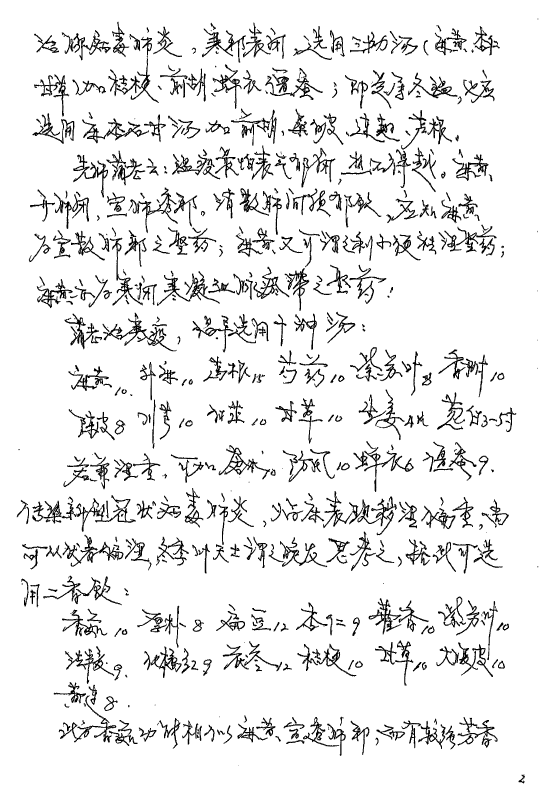 治腺病毒肺炎，寒邪表闭，选用三拗汤（麻黄、杏仁、
甘草）加桔梗、前胡、蝉衣、僵蚕；即是厚冬温，也应
选用麻杏石甘汤加前胡、桑皮、连翘、芦根。
先师蒲老云：温疫最怕表气郁闭，热不得越。麻黄
开肺闭，宣肺透邪。清散肺间须邪
为宣散肺郁之圣药；麻黄又可谓之利小便祛湿圣药；
麻黄亦为寒闭寒凝血脉瘀滞之圣药！
蒲老治寒疫，倡导选用十神汤：
麻黄10 升麻10 葛根15 芍药10 紫苏叶8 香附10
陈皮8 川芎10 白芷10 甘草10 生姜4片 葱白3~5寸
若兼湿重，可加藁本10 防风10 蝉衣6 僵蚕9.
传染新型冠状病毒肺炎，临床表现秽湿偏重，尚
可从伏暑偏湿，冬季叶天士谓之晚发思考之，据此可选
用二香饮：
香薷10 厚朴8 扁豆12 杏仁9 藿香10 紫苏叶10
法半夏9. 化橘红9 茯苓12 桔梗10 甘草10 大腹皮10
黄连8.
此方香薷功能相似麻黄，宣透肺郁，而有较强芳香
2